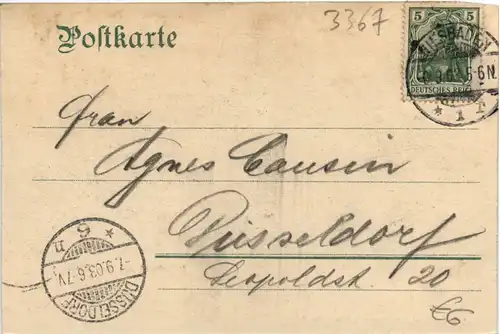 3367
Postkarte
5 5
DEUTSCHES REICH
WIESBADEN
6.9.03.5-6N.
* 1 *
Frau
Agnes Causin
Düsseldorf
Leopoldst. 20
DÜSSELDORF
-7.9.03.6-7V.
* 9 n
€6